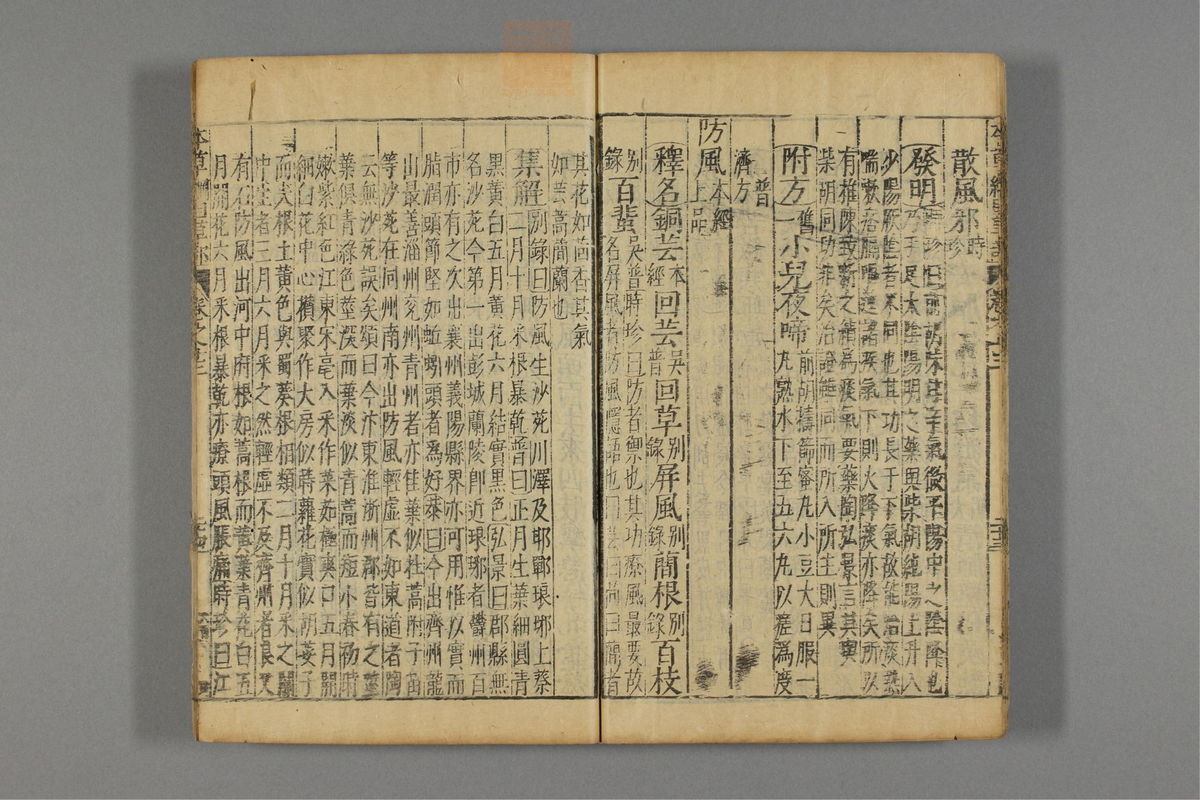 散風邪時珍
發明時珍曰前胡味甘辛氣微平陽中之陰降也
乃手足太陰陽明之藥與柴胡純陽上升入
少陽厥陰者不同也其功長于下氣故能治痰熱
喘嗽痞膈嘔逆諸疾氣下則火降痰亦降矣所以
有推陳致新之績爲痰氣要藥陶弘景言其與
柴胡同功非矣治證雖同而所入所主則異
附方舊一小兒夜啼前胡擣篩蜜丸小豆大日服一
丸熟水下至五六丸以瘥爲度
普濟方
防風本經上品
釋名銅芸本經回芸吳普回草別錄屏風別錄䕲根別錄百枝
別錄百蜚吳普時珍曰防者禦也其功療風最要故
名屏風者防風隱語也曰芸曰茴曰䕲者
其花如茴香其氣
如芸蒿䕲蘭也
集解別錄曰防風生沙苑川澤及邯鄲琅琊上蔡
二月十月采根暴乾普曰正月生葉細圓青
黑黃白五月黃花六月結實黑色弘景曰郡縣無
名沙苑今第一出彭城蘭陵卽近琅琊者鬱州百
市亦有之次出襄州義陽縣界亦可用惟以實而
脂潤頭節堅如蚯蚓頭者爲好恭曰今出齊州龍
山最善淄州兗州青州者亦佳葉似牡蒿附子苗
等沙苑在同州南亦出防風輕虛不如東道者陶
云無沙苑誤矣頌曰今汴東淮浙州郡皆有之莖
葉俱青綠色莖深而葉淡似青蒿而短小春初時
嫩紫紅色江東宋亳人采作菜茹極爽口五月開
細白花中心攢聚作大房似蒔蘿花實似胡荽子
而大根土黃色與蜀葵根相類二月十月采之關
中生者三月六月采之然輕虛不及齊州者良又
有石防風出河中府根如蒿根而黃葉青花白五
月開花六月采根暴乾亦療頭風脹痛時珍曰江
本草綱目
卷之十三